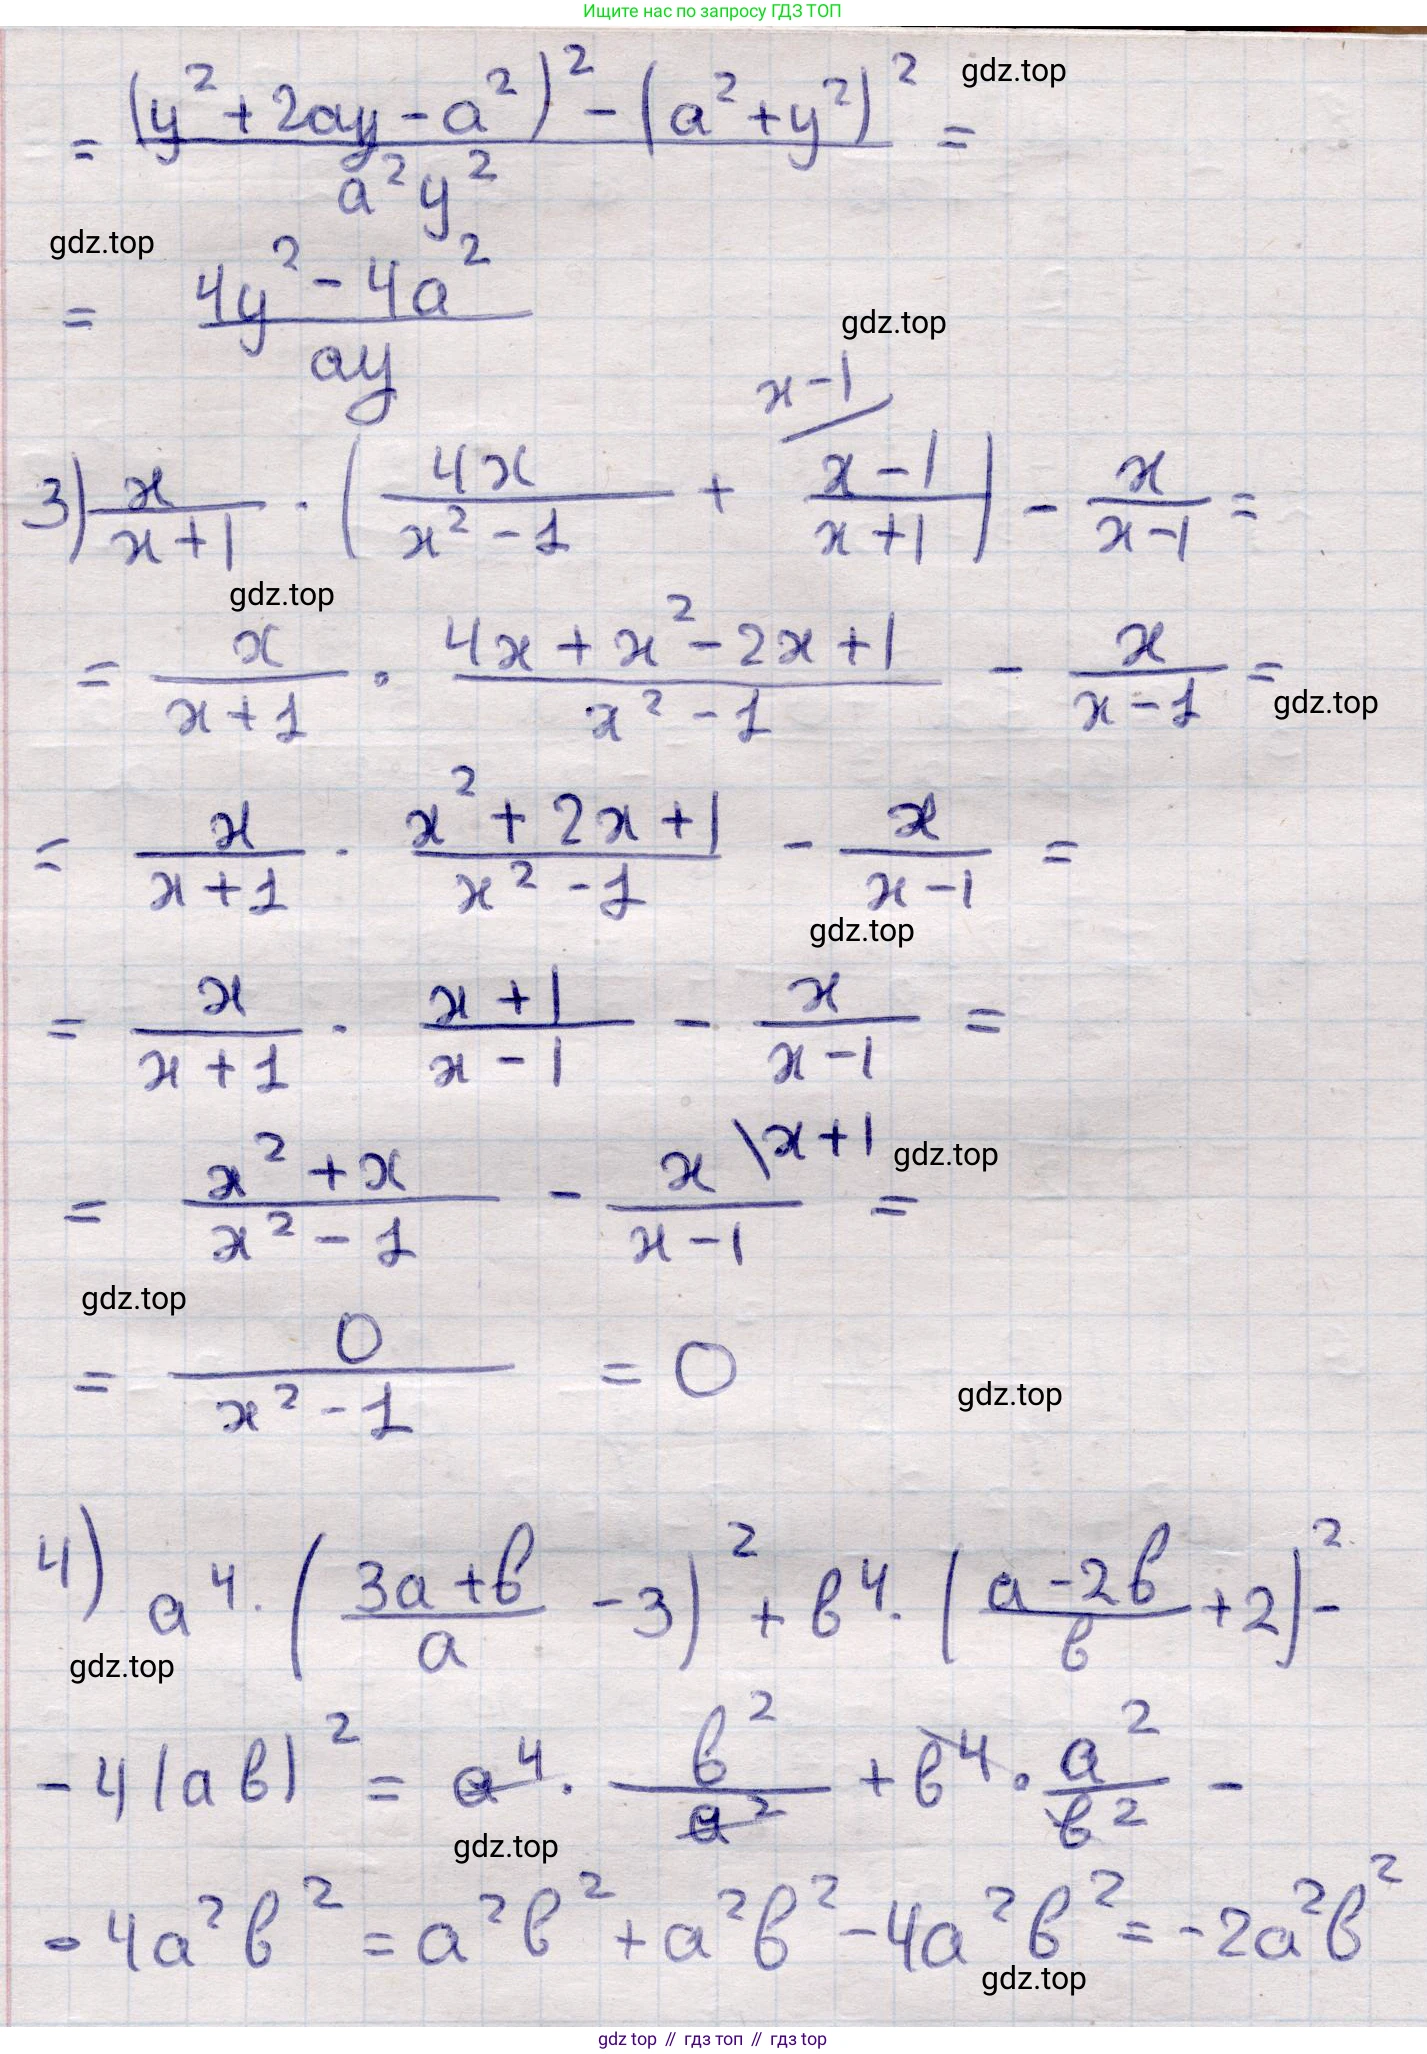 Ищите нас по запросу ГДЗ ТОП
= ((y² + 2ay - a²)² - (a² + y²)²) / (a²y²) =
gdz.top
gdz.top
= (4y² - 4a²) / (ay)
gdz.top
x-1
3) x/(x+1) · (4x/(x²-1) + (x-1)/(x+1)) - x/(x-1) =
gdz.top
= x/(x+1) · (4x+x²-2x+1)/(x²-1) - x/(x-1) =
gdz.top
= x/(x+1) · (x²+2x+1)/(x²-1) - x/(x-1) =
gdz.top
= x/(x+1) · (x+1)/(x-1) - x/(x-1) =
= (x²+x)/(x²-1) - x\x+1/(x-1) =
gdz.top
gdz.top
= 0/(x²-1) = 0
gdz.top
4) a⁴ · ((3a+b)/a - 3)² + b⁴ · ((a-2b)/b + 2)² -
gdz.top
- 4(ab)² = a⁴ · b²/a² + b⁴ · a²/b² -
gdz.top
- 4a²b² = a²b² + a²b² - 4a²b² = -2a²b²
gdz.top
gdz top // гдз топ // гдз top